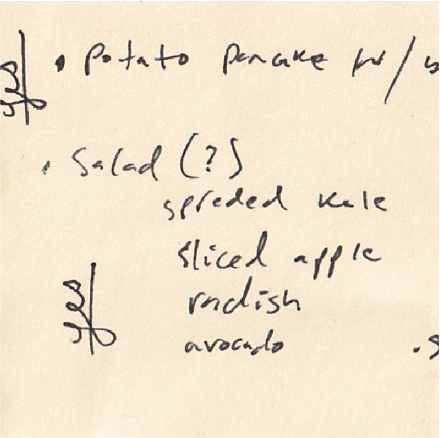 yes
• Potato pancake for/
• Salad (?)
spreded kale
sliced apple
radish
avocado
yes